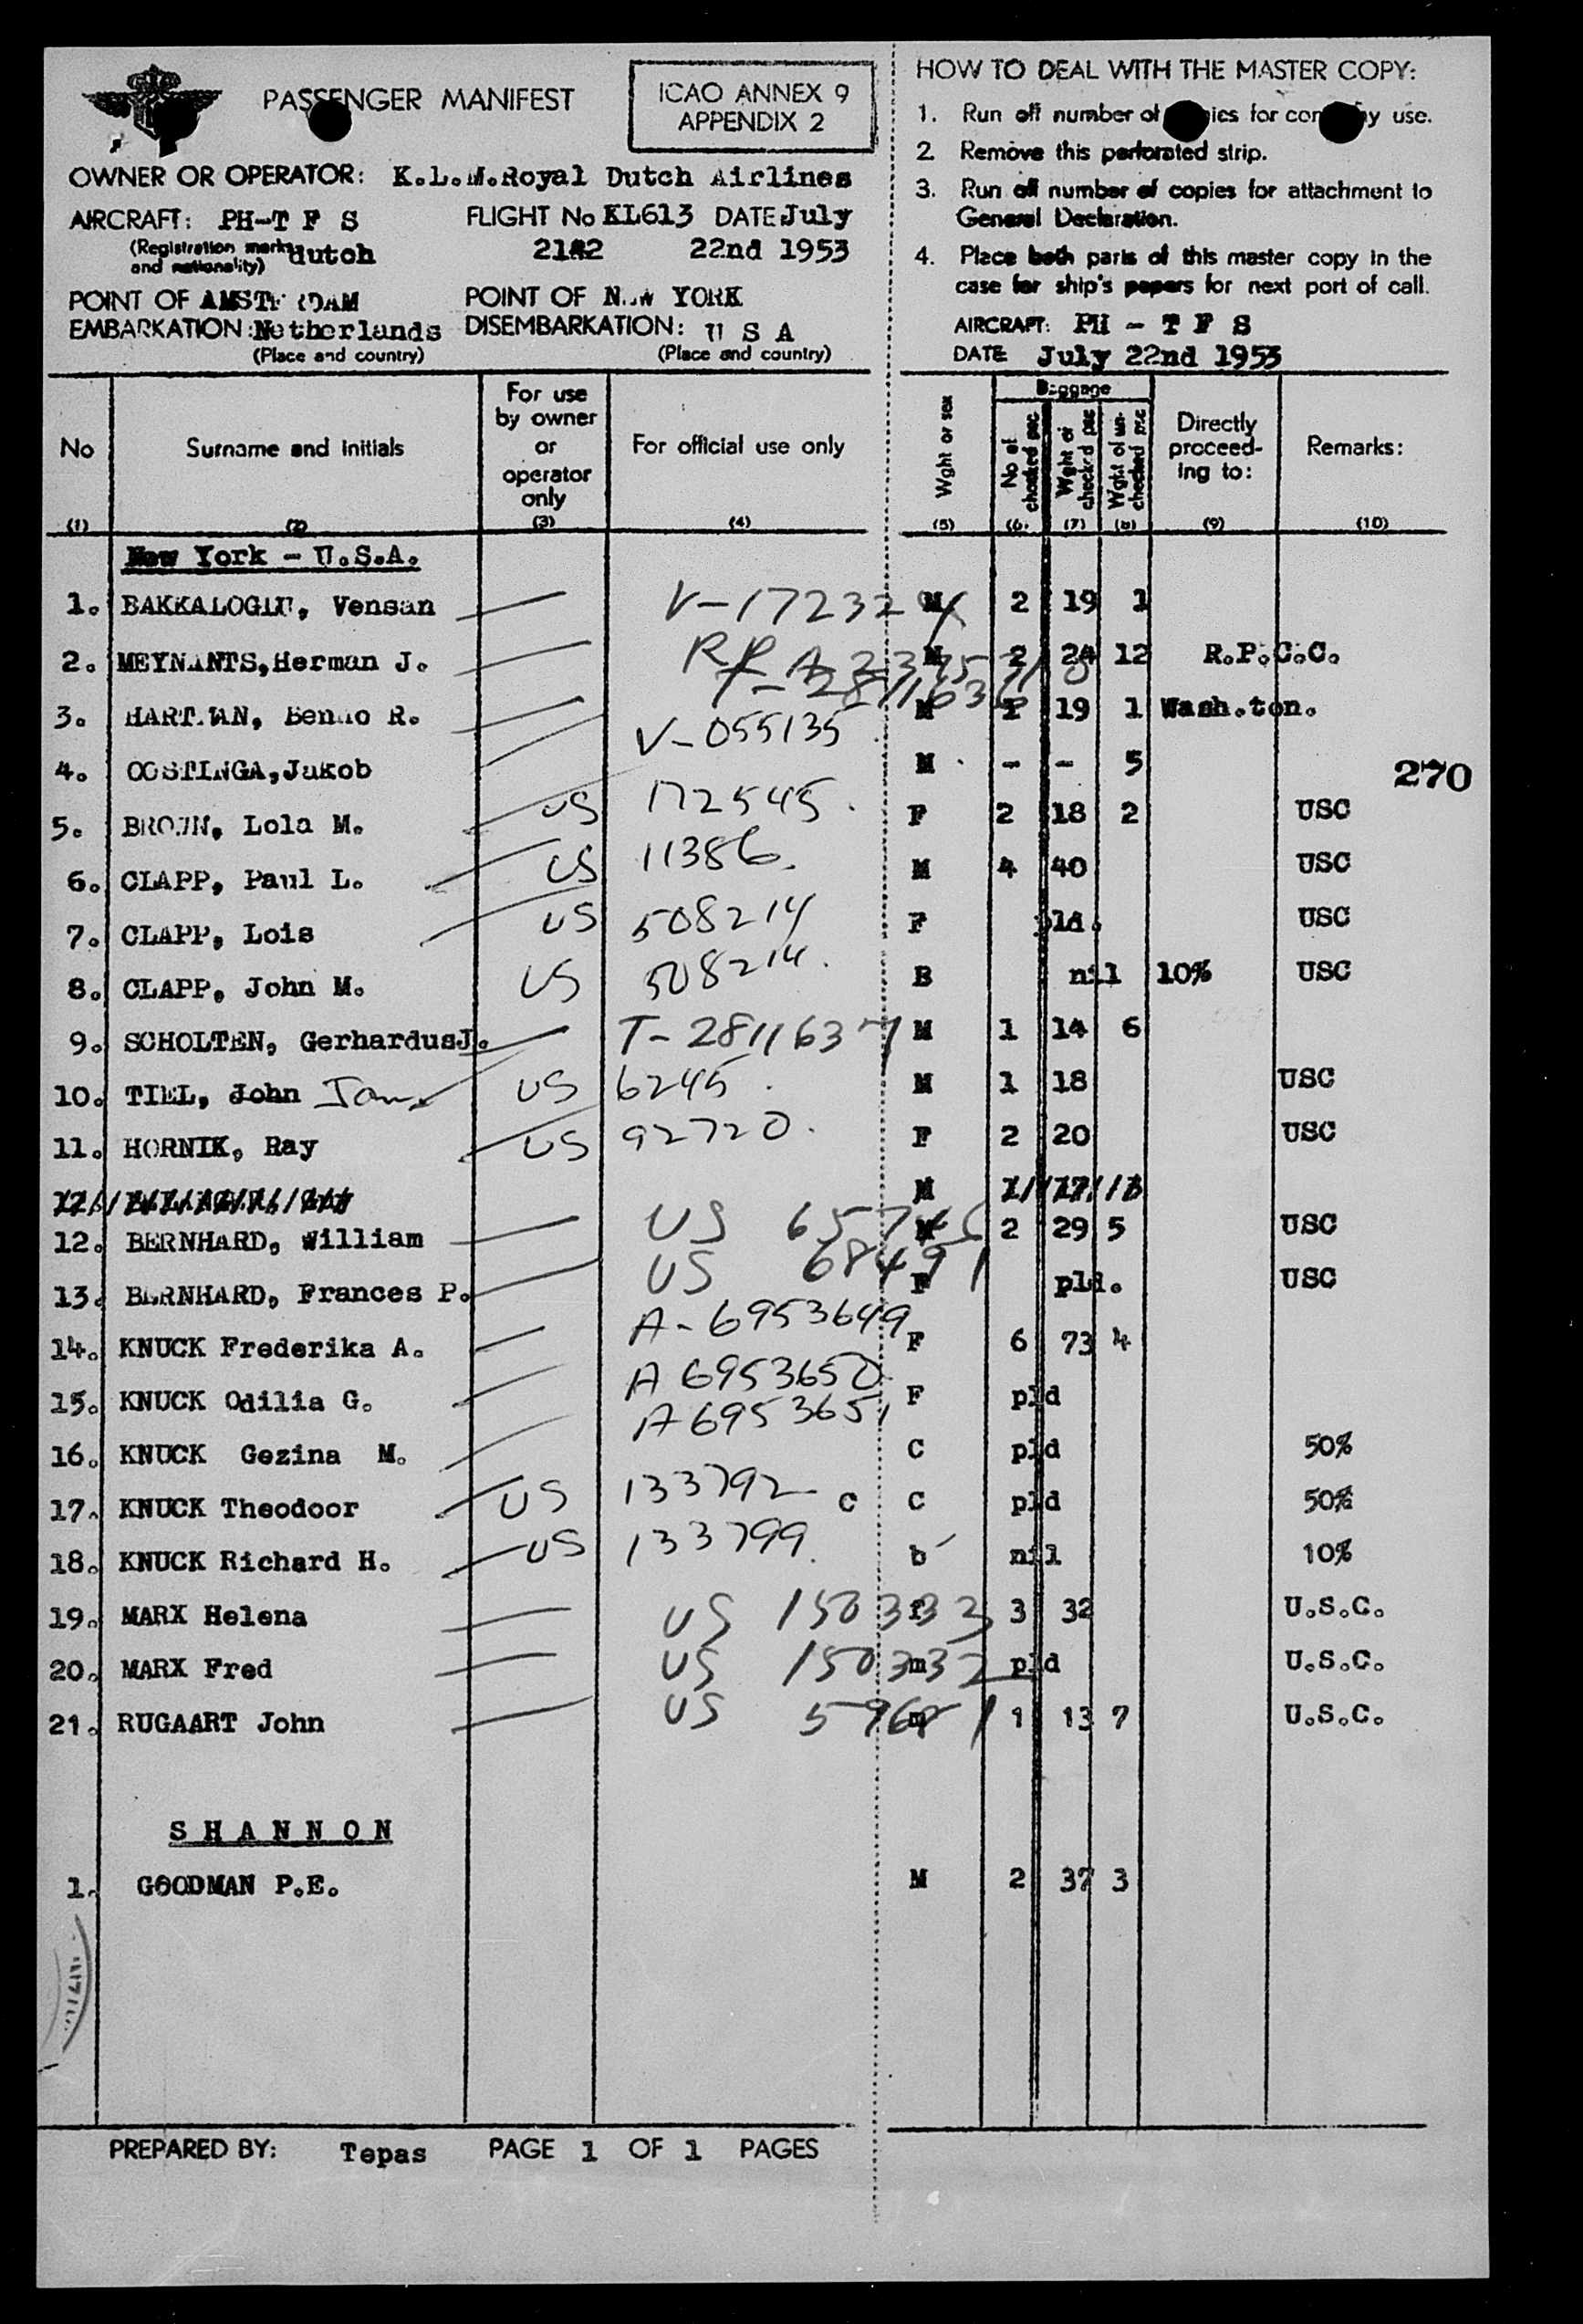 PASSENGER MANIFEST
ICAO ANNEX 9
APPENDIX 2
OWNER OR OPERATOR: K.L.M.Royal Dutch Airlines
AIRCRAFT: PH-T F S FLIGHT No KL613 DATE July
(Registration marks and nationality) dutch 22nd 1953
POINT OF EMBARKATION: AMSTERDAM Netherlands
(Place and country)
POINT OF DISEMBARKATION: NEW YORK U S A
(Place and country)
HOW TO DEAL WITH THE MASTER COPY:
1. Run off number of copies for company use.
2. Remove this perforated strip.
3. Run off number of copies for attachment to
General Declaration.
4. Place both parts of this master copy in the
case for ship's papers for next port of call.
AIRCRAFT: PH - T F S
DATE July 22nd 1953
No Surname and initials For use by owner or operator only For official use only Wght or sex Baggage No of checked pec Wght of checked pec Wght of un-checked pec Directly proceed-ing to: Remarks:
(1) (2) (3) (4) (5) (6) (7) (8) (9) (10)
New York - U.S.A.
1. BAKKALOGLU, Vensan V-172322 M 2 19 1
2. MEYNANTS, Herman J. M 2 24 12 R.P.C.C.
3. HARTMAN, Benno R. M 19 1 Wash.ton.
4. OOSTINGA, Jakob V-055135 M - - 5
270
5. BROWN, Lola M. US 172545 F 2 18 2 USC
6. CLAPP, Paul L. US 11386 M 4 40 USC
7. CLAPP, Lois US 508214 F pld. USC
8. CLAPP, John M. US 508214 B nil 10% USC
9. SCHOLTEN, GerhardusJ. T-2811637 M 1 14 6
10. TIEL, John Jan US 6245 M 1 18 USC
11. HORNIK, Ray US 92720 F 2 20 USC
M
12. BERNHARD, William US M 2 29 5 USC
13. BERNHARD, Frances P. US 68491 F pld. USC
14. KNUCK Frederika A. A-6953649 F 6 73 4
15. KNUCK Odilia G. A 6953650 F pld
16. KNUCK Gezina M. A 6953651 C pld 50%
17. KNUCK Theodoor US 133792 C C pld 50%
18. KNUCK Richard H. US 133799 b nil 10%
19. MARX Helena US 150333 f 3 32 U.S.C.
20. MARX Fred US 150332 m pld U.S.C.
21. RUGAART John US m 1 13 7 U.S.C.
S H A N N O N
1. GOODMAN P.E. M 2 37 3
PREPARED BY: Tepas PAGE 1 OF 1 PAGES